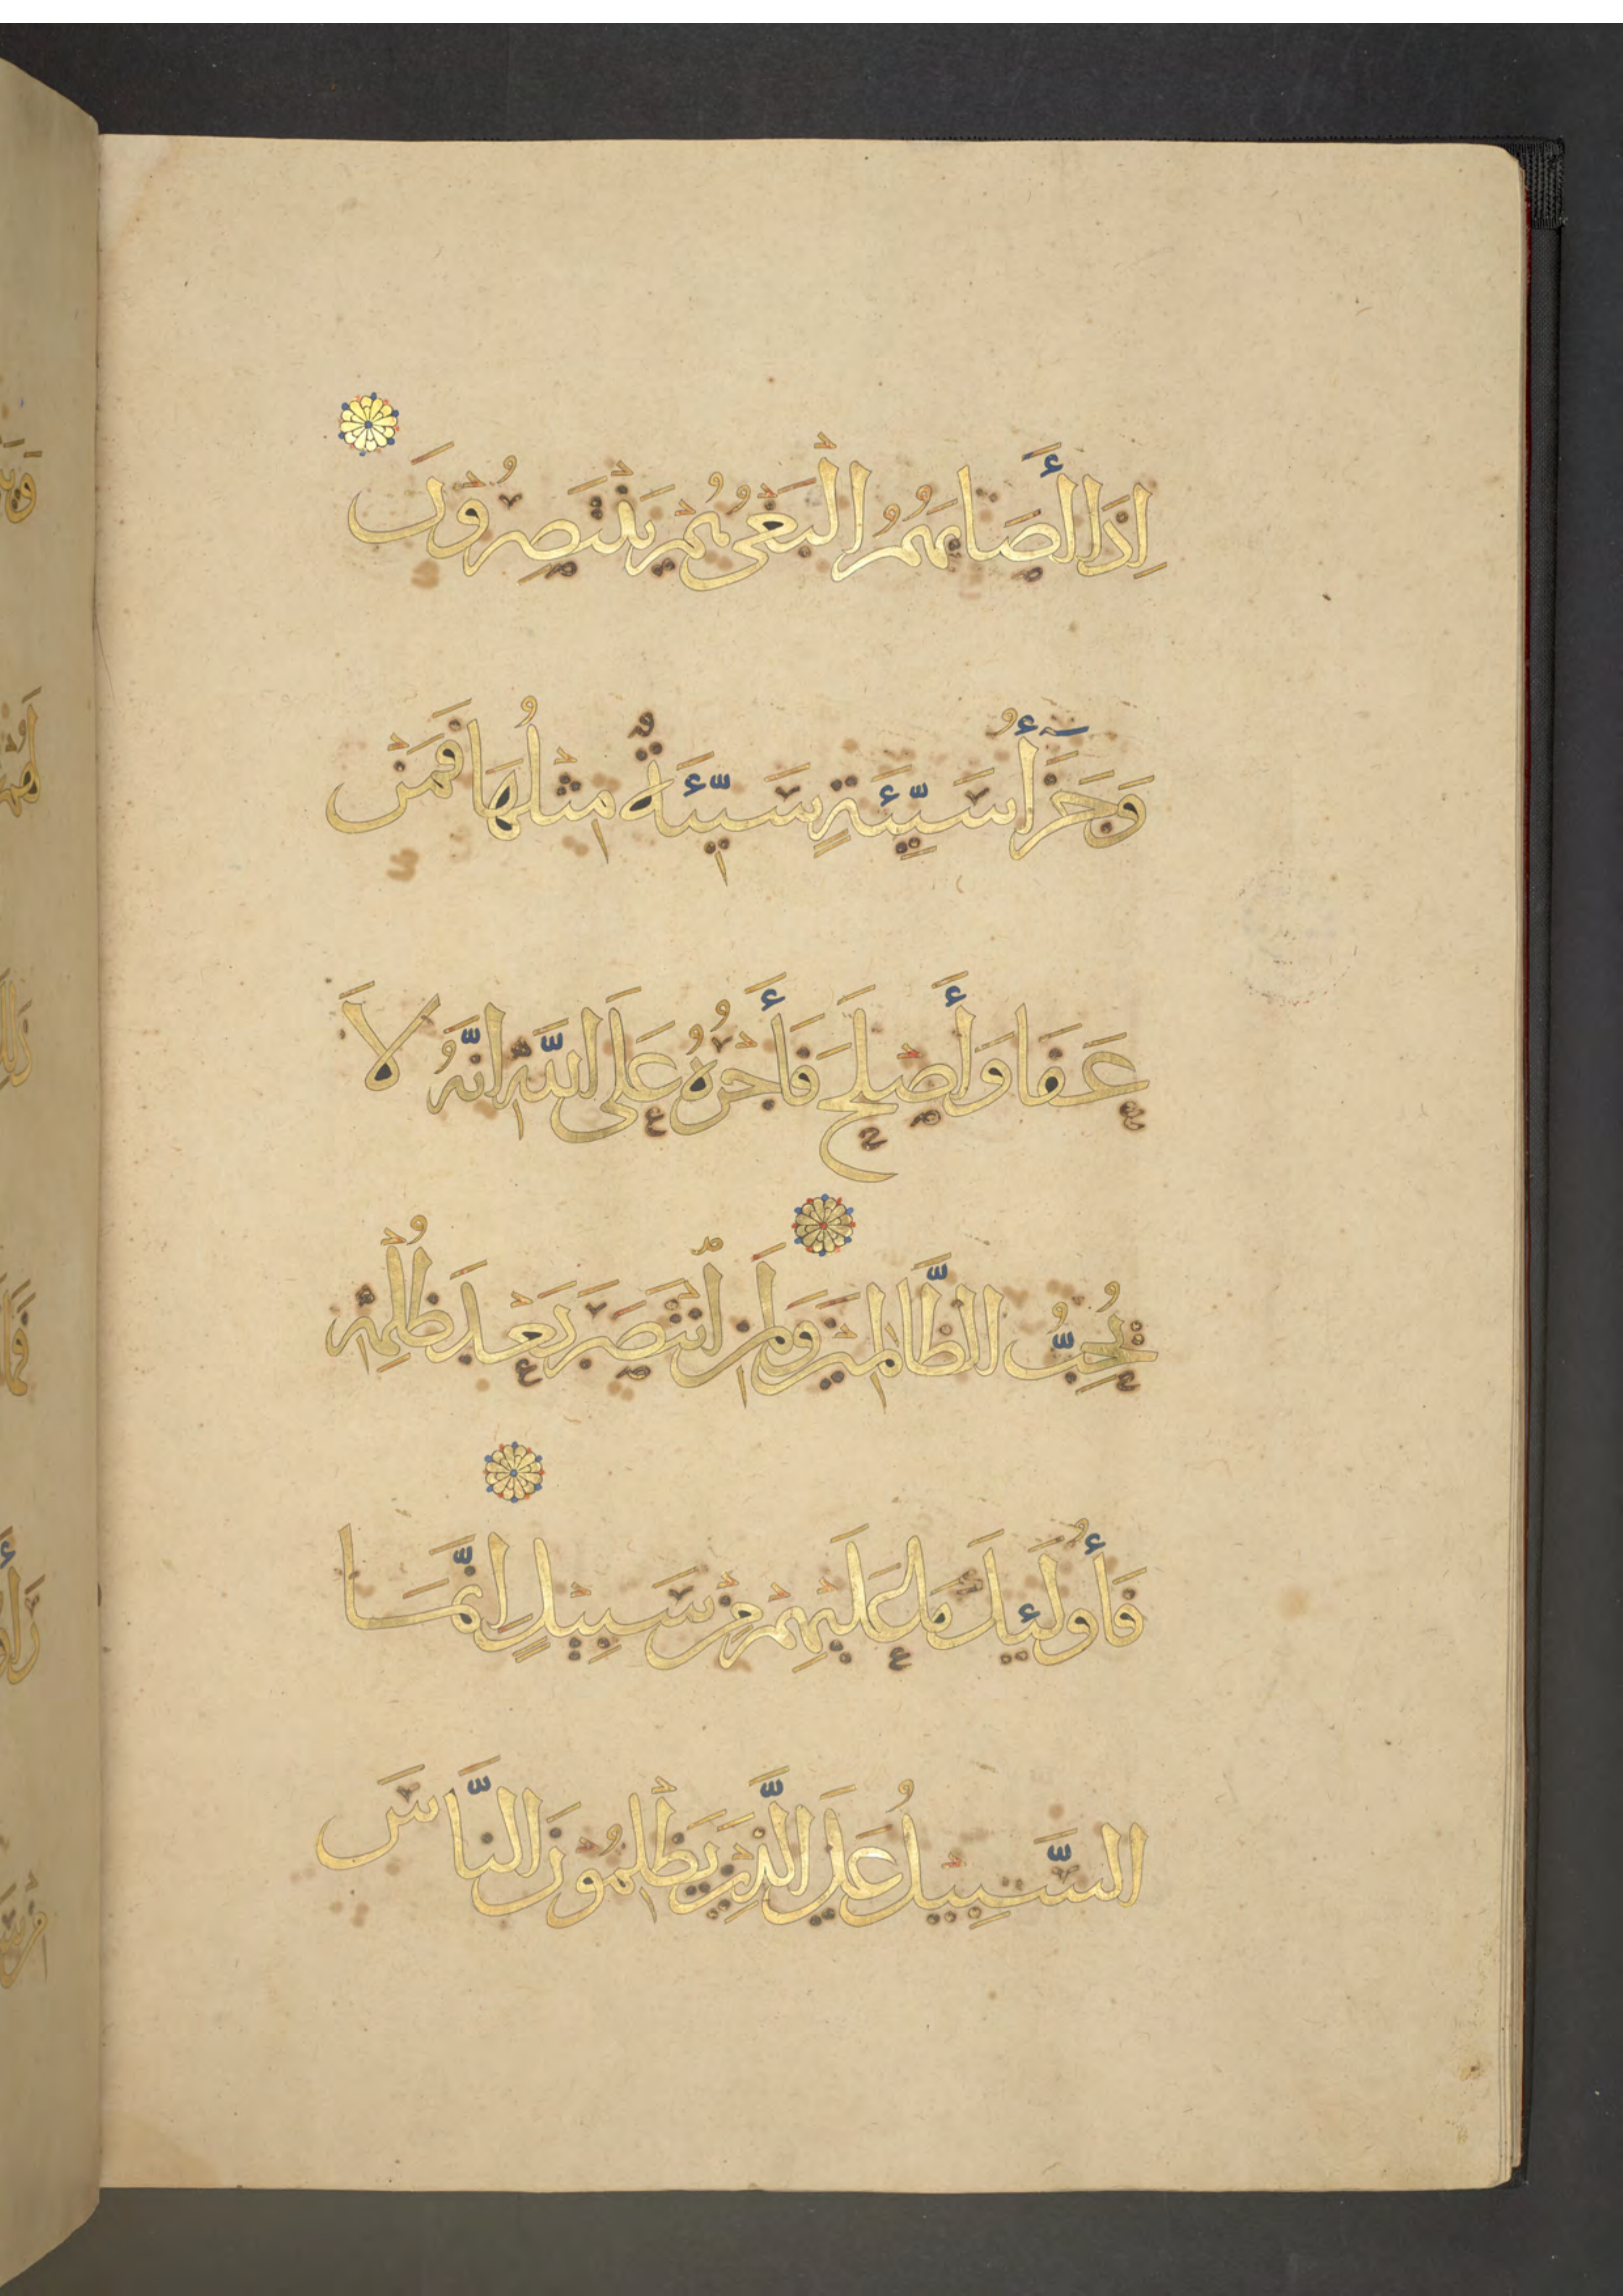 اِذَا أَصَابَهُمُ الْبَغْىُ هُمْ يَنْتَصِرُونَ
وَجَزَٰٓأُ سَيِّئَةٍ سَيِّئَةٌ مِثْلُهَا فَمَنْ
عَفَا وَأَصْلَحَ فَأَجْرُهُ عَلَى اللَّهِ اِنَّهُ لاَ
يُحِبُّ الظَّالِمِينَ وَلَمَنِ انْتَصَرَ بَعْدَ ظُلْمِهِ
فَأُولَئِكَ مَا عَلَيْهِمْ مِنْ سَبِيْلٍ اِنَّمَا
السَّبِيْلُ عَلَى الَّذِيْنَ يَظْلِمُوْنَ النَّاسَ